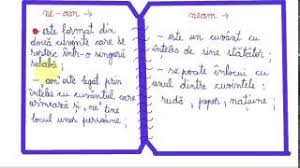 ne-am →
• este format din
două cuvinte care se
rostesc într-o singură
silabă ;
- "am" este legat prin
înțeles cu cuvântul care
urmează și, "ne" ține
locul unei persoane ;
neam →
- este un cuvânt cu
înțeles de sine stătător ;
- se poate înlocui cu
unul dintre cuvintele :
rudă, popor, națiune ;